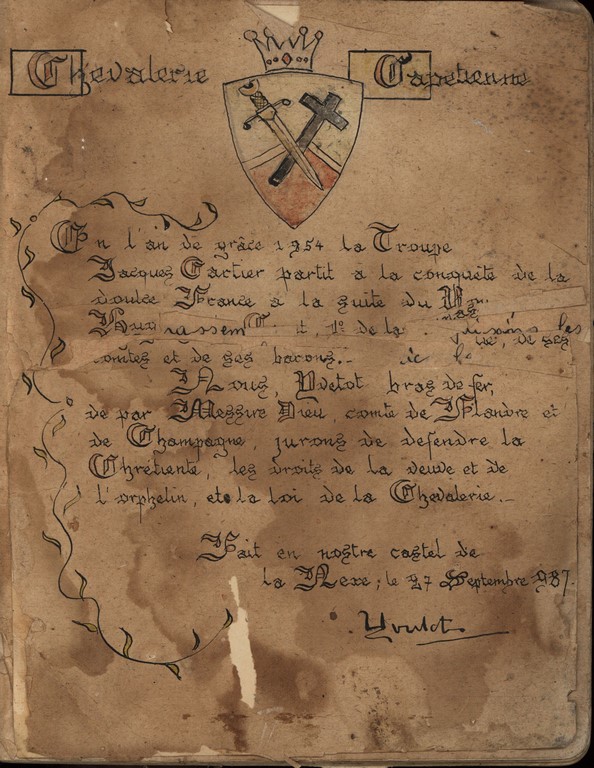 Chevalerie Capétienne
En l'an de grâce 1954 la Troupe
Jacques Cartier partit a la conquête de la
doulce France a la suite du
de la
comtes et de ses barons.-
Nous, Yvetot bras de fer,
de par Messire Dieu, comte de Flandre et
de Champagne, jurons de defendre la
Chrétienté, les droits de la veuve et de
l'orphelin, et la loi de la Chevalerie.-
Fait en nostre castel de
la Nexe; le 27 Septembre 987.